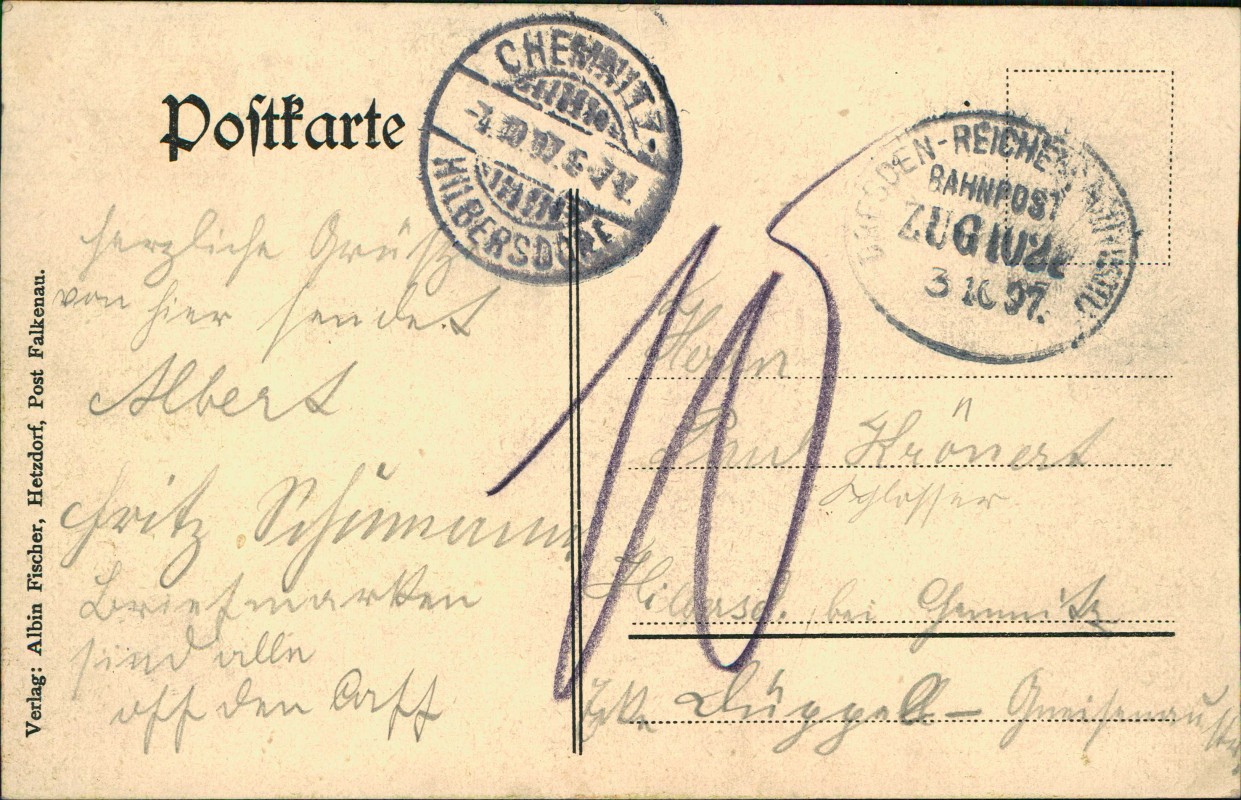 Postkarte
CHEMNITZ
HILBERSDORF
DRESDEN-REICHENBACH
BAHNPOST
ZUG 1021
3 10 07.
herzliche Grüße
von hier sendet
Albert
Fritz Schümann
Briefmarken
sind alle
off den
10
Herrn
Paul Krönert
Schlosser
Hilbersd. bei Chemnitz
Ecke Düppel- Gneisenaustr
Verlag: Albin Fischer, Hetzdorf, Post Falkenau.